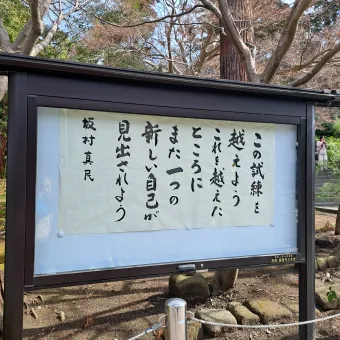 この試練を
越えよう
これを越えた
ところに
また一つの
新しい自己が
見出されよう
坂村真民